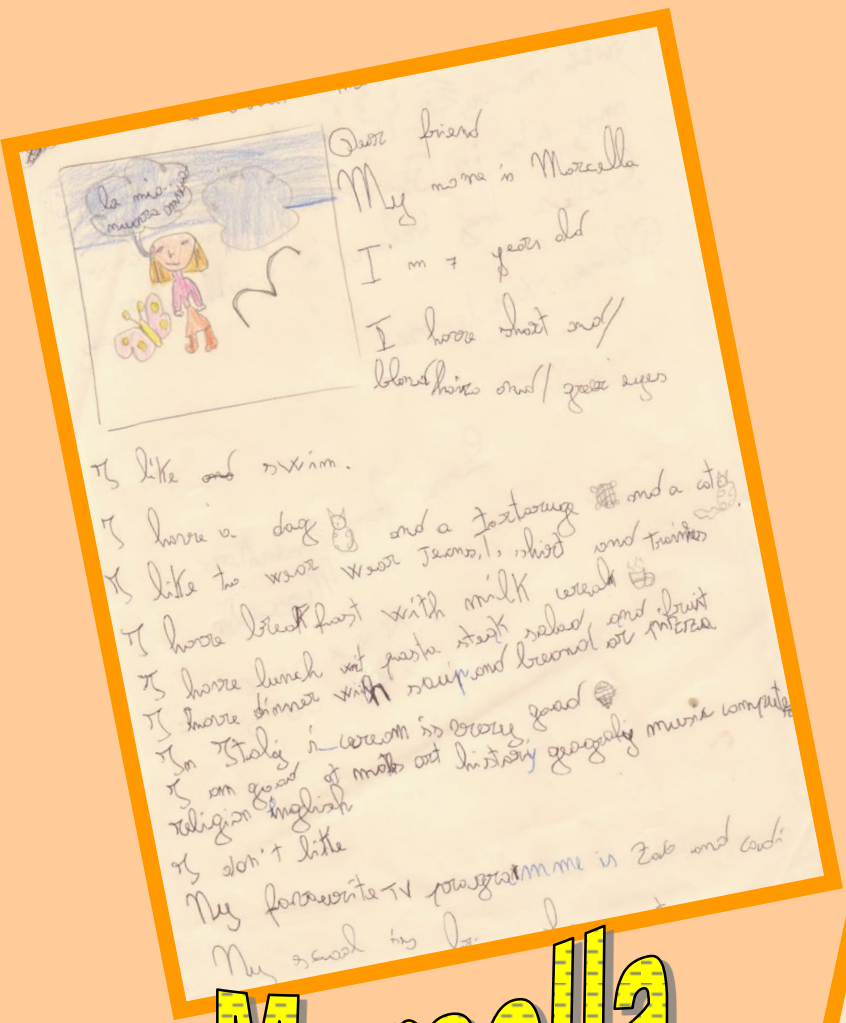 la mia
nuova amica
Dear friend
My name is Marcella
I'm 7 years old
I have short and/
blond hairs and/ green eyes
I like and swim.
I have a dog and a tartaruge and a cat
I like to wear wear Jeans, T, shirt and trainers
I have breakfast with milk cereal
I have lunch wit pasta steak salad, and fruit
I have dinner with soup and breand, or pizza
In Italy i-cream is very good
I am good at maths art history geografy music computer
religion inglish
I don't like
My favourite TV programme is Zac and
My is
Marcella